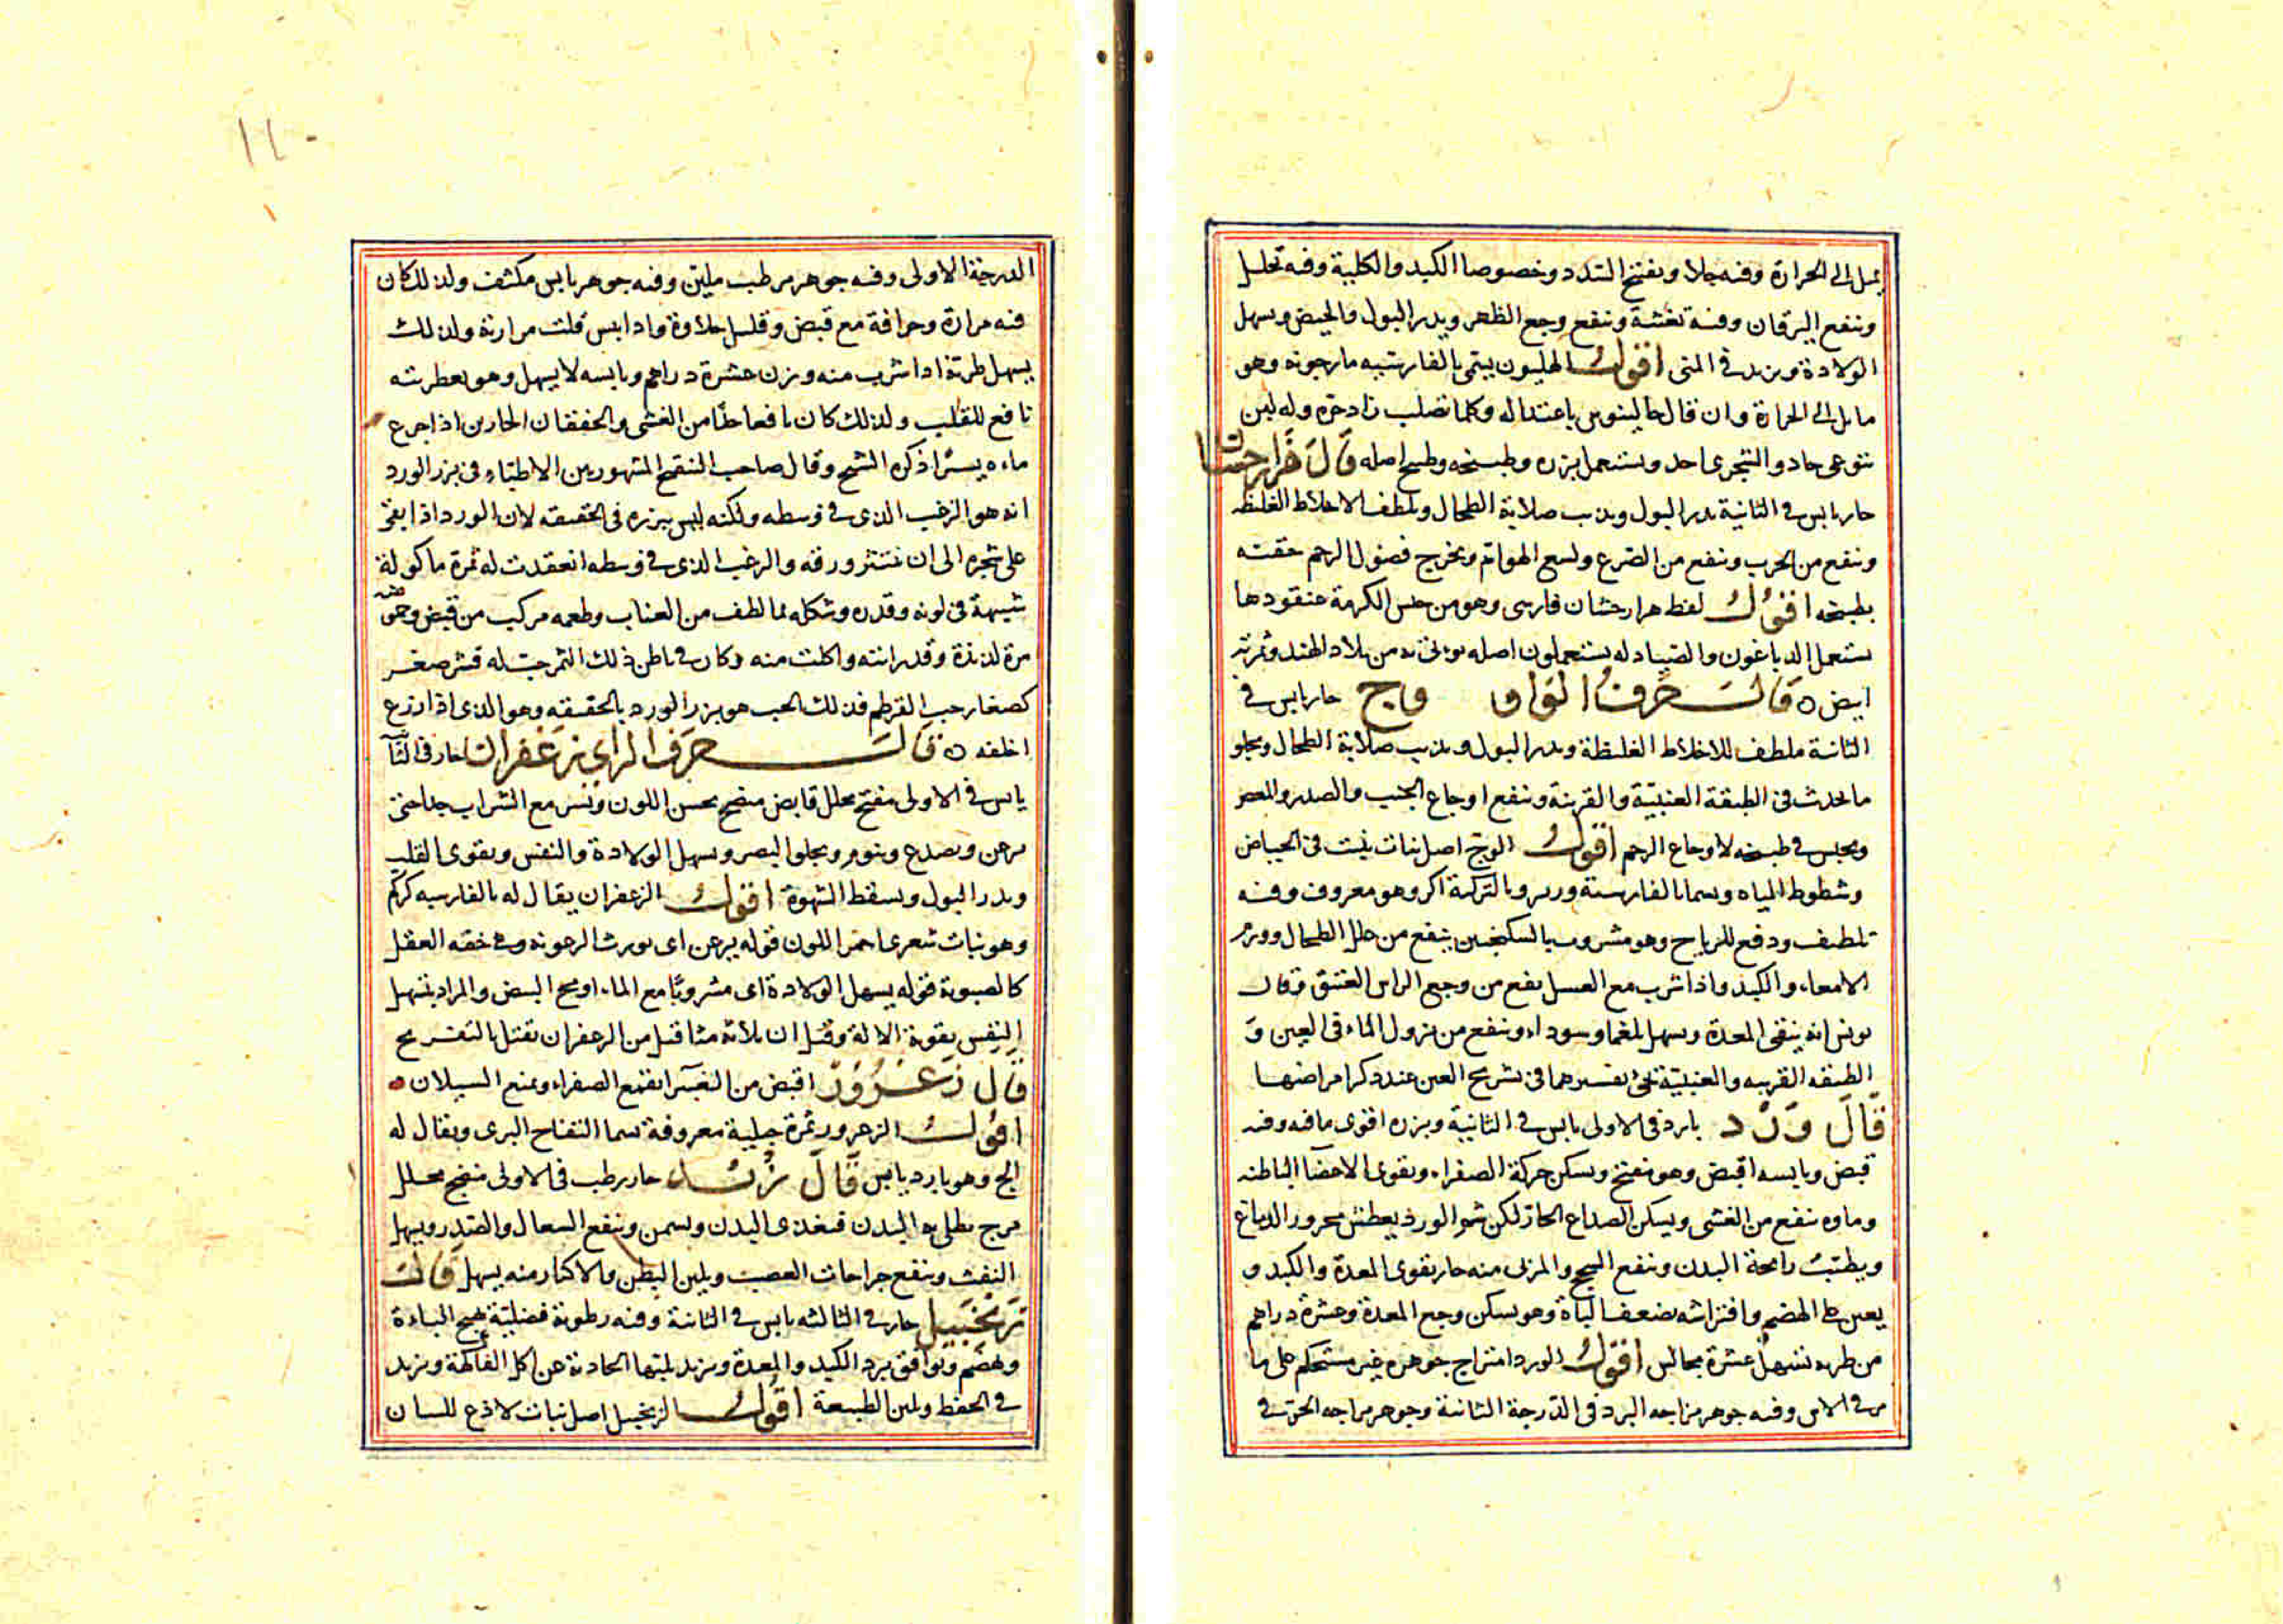 يميل الى الحرارة وفيه جلا ويفتح السدد وخصوصا الكبد والكلية وفيه تحليل
وينفع اليرقان وفيه تغشية وينفع وجع الظهر ويدر البول والحيض ويسهل
الولادة ويزيد فى المنى اقول الهليون يسمى بالفارسية مارجوبه وهو
مايل الى الحرارة وان قال جالينوس باعتداله وكلما تصلب زاد حره وله لبن
يتوعى حاد والشجرى احد ويستعمل بزره وطبيخه وطبيخ اصله قال هزارجشان
حار يابس فى الثانية يدر البول ويذيب صلابة الطحال ويلطف الاخلاط الغليظة
وينفع من الجرب وينفع من الصرع ولسع الهوام ويخرج فضول الرحم حقنته
بطبيخه اقول لفظ هزارجشان فارسى وهو من جنس الكرمة عنقودها
يستعمل الدباغون والصيادله يستعملون اصله يؤتى به من بلاد الهند وثمرته
ابيض ه قال حرف الواو وج حار يابس فى
الثانية ملطف للاخلاط الغليظة ويدر البول ويذيب صلابة الطحال ويجلو
ما يحدث فى الطبقة العنبية والقرنية وينفع اوجاع الجنب والصدر والمغص
ويجلس فى طبيخه لاوجاع الرحم اقول الوج اصل نبات ينبت فى الحياض
وشطوط المياه ويسما بالفارسية وبالتركية اكر وهو معروف وفيه
تلطيف ودفع للرياح وهو مشروب بالسكنجبين ينفع من علل الطحال وورم
الامعاء والكبد واذا شرب مع العسل نفع من وجع الراس العتيق وقال
يونس انه ينقى المعدة ويسهل بلغما وسوداء وينفع من نزول الماء فى العين و
الطبقه القرنيه والعنبية تفسيرهما فى تشريح العين عند ذكر امراضها
قال ورد بارد فى الاولى يابس فى الثانية وبزره اقوى ما فيه وفيه
قبض ويابسه اقبض وهو مفتح ويسكن حركة الصفراء ويقوى الاعضا الباطنه
وماوه ينفع من الغشى ويسكن الصداع الحار لكن شم الورد يعطش محرور الدماغ
ويطيب رايحة البدن وينفع السحج والمربى منه حار يقوى المعدة والكبد و
يعين على الهضم وافتراشه يضعف الباة وهو يسكن وجع المعدة وعشرة دراهم
من طريه تسهل عشرة مجالس اقول الورد امتزاج جوهره غير مستحكم على ما
مر فى الاس وفيه جوهر مزاجه البرد فى الدرجة الثانية وجوهر مزاجه الحر فى
الدرجة الاولى وفيه جوهر مرطب ملين وفيه جوهر يابس مكثف ولذلك كان
فيه مرارة وحرافة مع قبض وقليل حلاوة واذا يبس قلت مرارته ولذلك
يسهل طريه اذا شرب منه وزن عشرة دراهم ويابسه لا يسهل وهو بعطريته
نافع للقلب ولذلك كان نافعا من الغشى والخفقان الحارين اذا جرع
ماءه يسيرا ذكره الشيخ وقال صاحب التنقيح المشهور بين الاطباء فى بزر الورد
انه هو الزغب الذى فى وسطه ولكنه ليس ببزره فى الحقيقه لان الورد اذا بقى
على شجره الى ان ينتثر ورقه والزغب الذى فى وسطه انعقدت له ثمرة ماكولة
شبيهة فى لونه وقدره وشكله بما لطف من العناب وطعمه مركب من قبض وحموضة
مزة لذيذة وقد رايته واكلت منه وكان فى باطن ذلك الثمر حب له قشر صغير
كصغار حب القرطم فذلك الحب هو بزر الورد بالحقيقه وهو الذى اذا زرع
اخلفه ه قال حرف الزاى زعفران حار فى الثا
يابس فى الاولى مفتح محلل قابض منضج يحسن اللون مع الشراب جدا حتى
يرعن ويصدع وينوم ويجلو البصر ويسهل الولادة والنفس ويقوى القلب
ويدر البول ويسقط الشهوة اقول الزعفران يقال له بالفارسيه كركم
وهو نبات شعرى احمر اللون قوله يرعن اى يورث الرعونة وهى خفه العقل
كالصبوة قوله يسهل الولادة اى مشروبا مع الماء او مح البيض والمراد بتسهيل
النفس بقوية الالة وقيل ان ثلاثة مثاقيل من الزعفران تقتل بالتفريح
قال زعرور اقبض من الغبيرا يقمع الصفراء ويمنع السيلان ه
اقول الزعرور ثمرة جبلية معروفة تسما التفاح البرى ويقال له
الج وهو بارد يابس قال زبد حار رطب فى الاولى منضج محلل
مرخ يطلى به البدن فيغذى البدن ويسمن وينفع السعال والصدر ويسهل
النفث وينفع جراحات العصب ويلين البطن والاكثار منه يسهل قال
زنجبيل حار فى الثالثه يابس فى الثانية وفيه رطوبة فضلية يهيج الباءة
ويهضم ويوافق برد الكبد والمعدة ويزيل بلتها الحادثة عن اكل الفاكهة ويزيد
فى الحفظ ويلين الطبيعة اقول الزنجبيل اصل نبات لاذع للسان